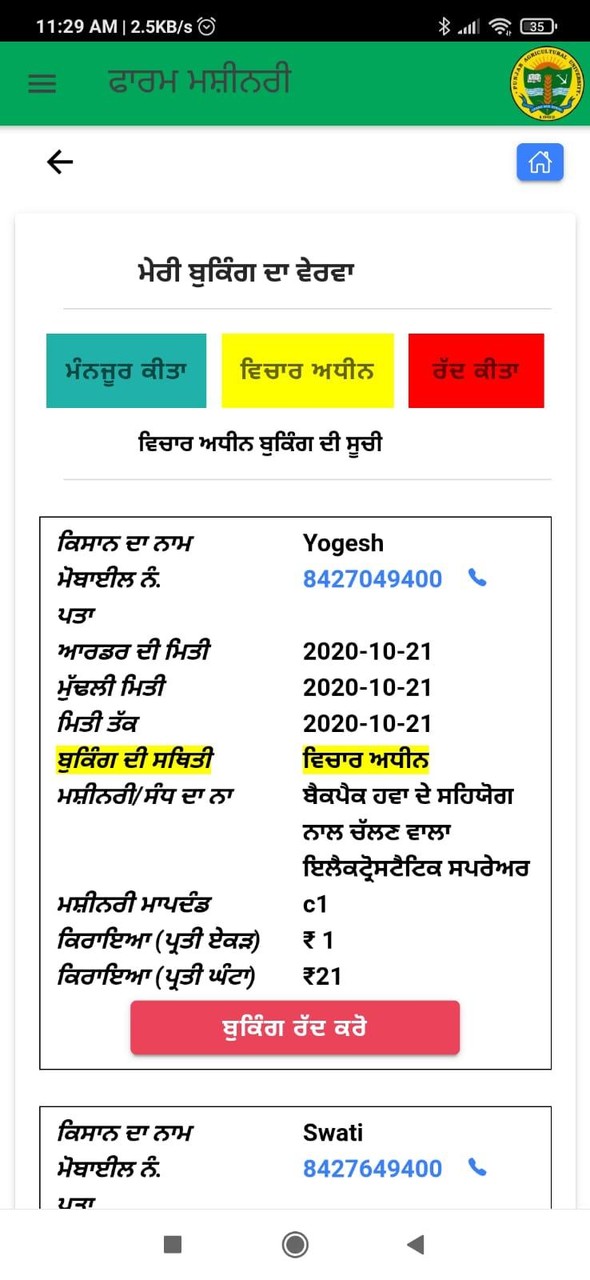 11:29 AM | 2.5KB/s
35
ਫਾਰਮ ਮਸ਼ੀਨਰੀ
PUNJAB AGRICULTURAL UNIVERSITY
1962
ਮੇਰੀ ਬੁਕਿੰਗ ਦਾ ਵੇਰਵਾ
ਮੰਨਜੂਰ ਕੀਤਾ ਵਿਚਾਰ ਅਧੀਨ ਰੱਦ ਕੀਤਾ
ਵਿਚਾਰ ਅਧੀਨ ਬੁਕਿੰਗ ਦੀ ਸੂਚੀ
ਕਿਸਾਨ ਦਾ ਨਾਮ Yogesh
ਮੋਬਾਈਲ ਨੰ. 8427049400
ਪਤਾ
ਆਰਡਰ ਦੀ ਮਿਤੀ 2020-10-21
ਮੁੱਢਲੀ ਮਿਤੀ 2020-10-21
ਮਿਤੀ ਤੱਕ 2020-10-21
ਬੁਕਿੰਗ ਦੀ ਸਥਿਤੀ ਵਿਚਾਰ ਅਧੀਨ
ਮਸ਼ੀਨਰੀ/ਸੰਧ ਦਾ ਨਾ ਬੈਕਪੈਕ ਹਵਾ ਦੇ ਸਹਿਯੋਗ
ਨਾਲ ਚੱਲਣ ਵਾਲਾ
ਇਲੈਕਟ੍ਰੋਸਟੈਟਿਕ ਸਪਰੇਅਰ
ਮਸ਼ੀਨਰੀ ਮਾਪਦੰਡ c1
ਕਿਰਾਇਆ (ਪ੍ਰਤੀ ਏਕੜ) ₹ 1
ਕਿਰਾਇਆ (ਪ੍ਰਤੀ ਘੰਟਾ) ₹21
ਬੁਕਿੰਗ ਰੱਦ ਕਰੋ
ਕਿਸਾਨ ਦਾ ਨਾਮ Swati
ਮੋਬਾਈਲ ਨੰ. 8427649400
ਪਤਾ